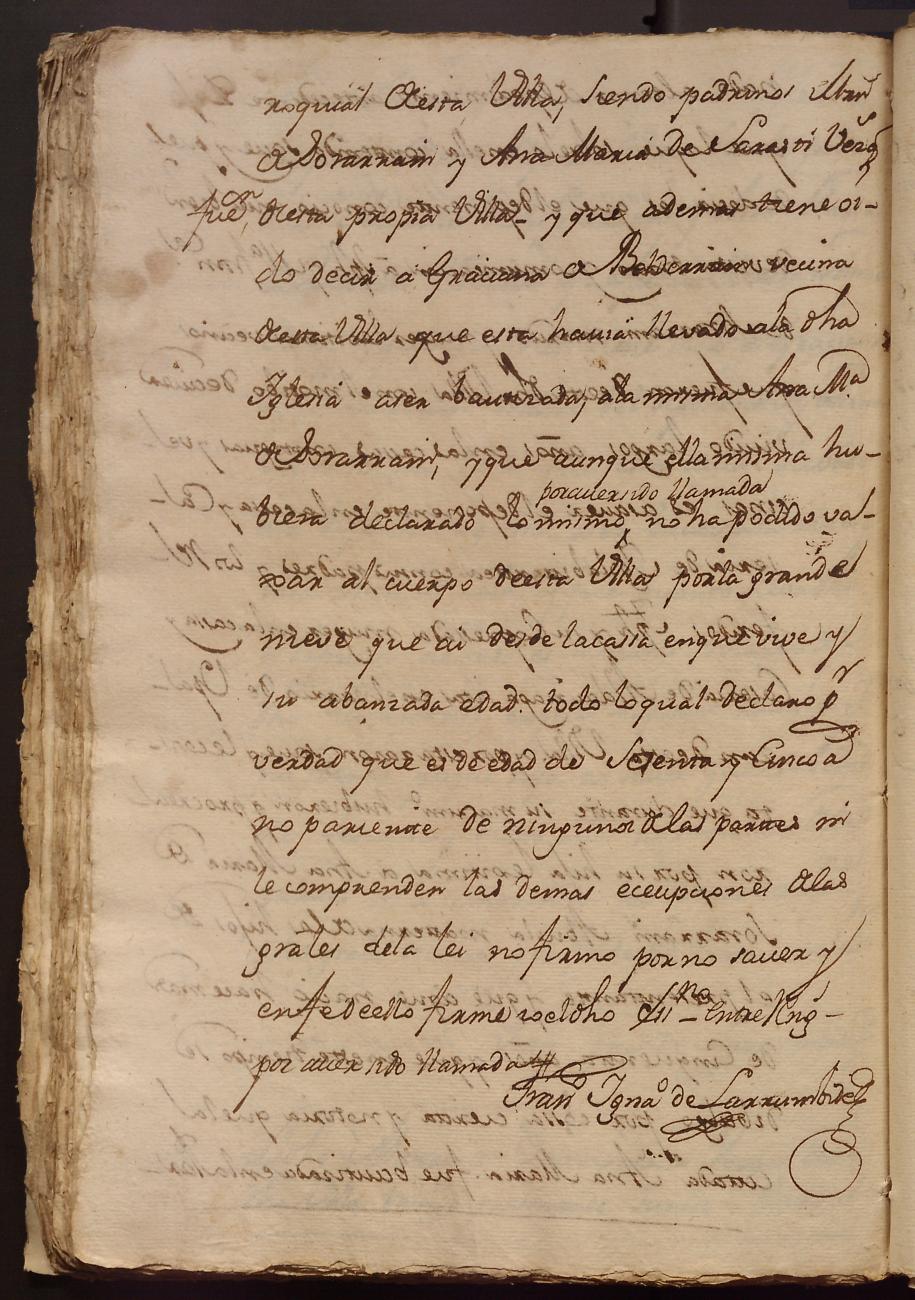 roquial desta Villa, siendo padrinos Mrn
de Sorarrain y Ana Maria de Sarasti Vezs
que fuen, desta propia Villa_ y que ademas tiene oi-
do decir a Graciana de Belderrain vecina
desta Villa que esta haviä llevado ala dha
Iglesia a ser bautizada, ala misma Ana Ma.
de Sorarrain, y que aunque ella misma hu-
por aver sido llamada
biera declarado lo mismo, no ha podido va-
xar al cuerpo de esta Villa por la grande
nieve que ai desde la cassa en que vive y
su abanzada edad. todo lo qual declaro pr
verdad que es de edad de Setenta y Cinco a
no pariente de ninguno de las partes ni
le comprenden las demas ecepciones de las
grales de la lei no firmo por no saver y
en fe de ello firme io el dho essno_ Entre Rng-
por aver sido llamada
Frano Ignao de Larrumbide